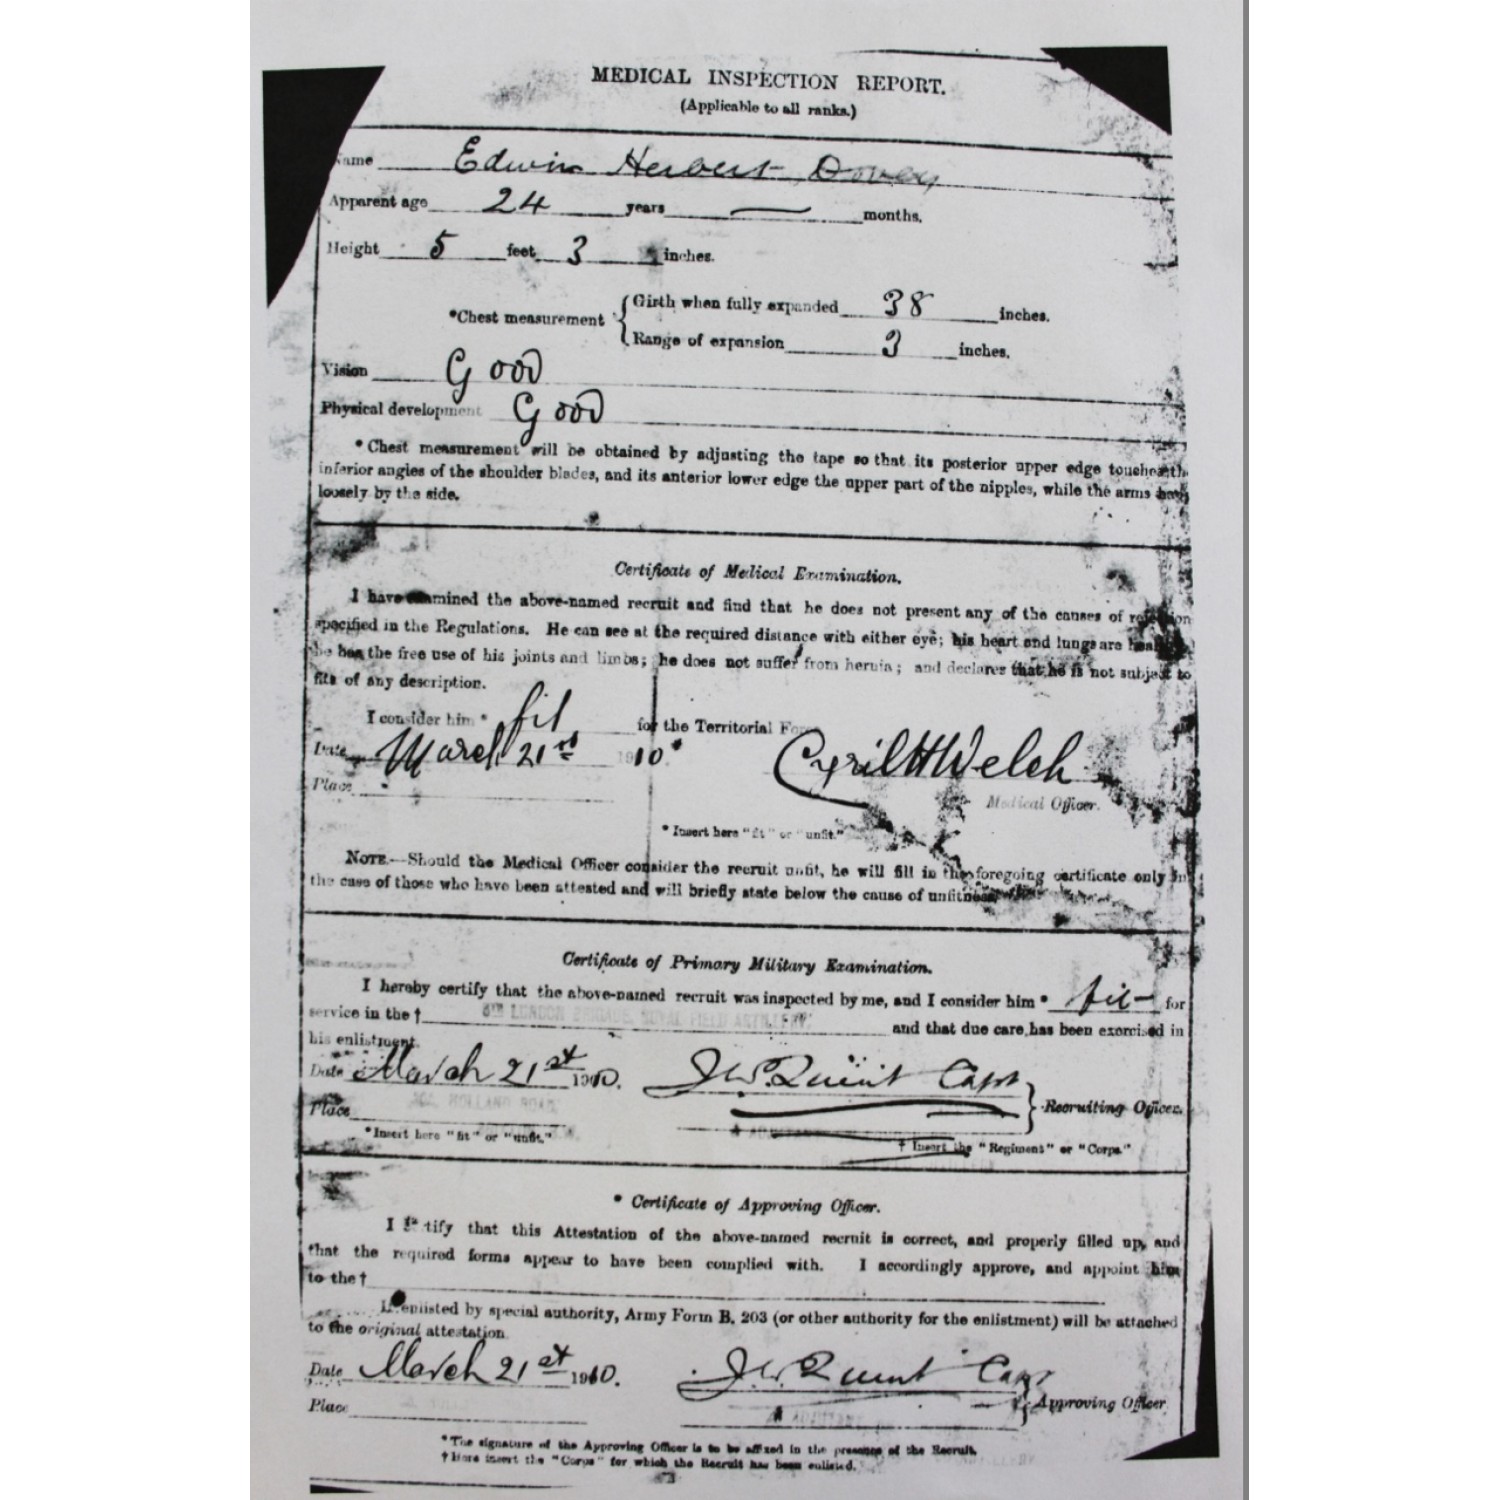 MEDICAL INSPECTION REPORT.
(Applicable to all ranks.)
Name Edwin Herbert Dovey
Apparent age 24 years — months.
Height 5 feet 3 inches.
*Chest measurement { Girth when fully expanded 38 inches.
Range of expansion 3 inches.
Vision Good
Physical development Good
* Chest measurement will be obtained by adjusting the tape so that its posterior upper edge touches the
inferior angles of the shoulder blades, and its anterior lower edge the upper part of the nipples, while the arms hang
loosely by the side.
Certificate of Medical Examination.
I have examined the above-named recruit and find that he does not present any of the causes of rejection
specified in the Regulations. He can see at the required distance with either eye; his heart and lungs are
he has the free use of his joints and limbs; he does not suffer from hernia; and declares that he is not subject to
fits of any description.
I consider him * fit for the Territorial
Date March 21st 1910
Cyril H Welch
Place
Medical Officer.
* Insert here "fit" or "unfit."
NOTE.—Should the Medical Officer consider the recruit unfit, he will fill in the foregoing certificate only in
the case of those who have been attested and will briefly state below the cause of unfitness
Certificate of Primary Military Examination.
I hereby certify that the above-named recruit was inspected by me, and I consider him * fit for
service in the † LONDON BRIGADE, ROYAL FIELD ARTILLERY. and that due care has been exercised in
his enlistment.
Date March 21st 1910. Capt
Place HOLLAND ROAD } Recruiting Officer.
* Insert here "fit" or "unfit."
† Insert the "Regiment" or "Corps."
* Certificate of Approving Officer.
I that this Attestation of the above-named recruit is correct, and properly filled up, and
that the required forms appear to have been complied with. I accordingly approve, and appoint him
to the †
enlisted by special authority, Army Form B. 203 (or other authority for the enlistment) will be attached
to the original attestation.
Date March 21st 1910. Capt
Place } Approving Officer
* The signature of the Approving Officer is to be affixed in the presence of the Recruit.
† Here insert the "Corps" for which the Recruit has been enlisted.